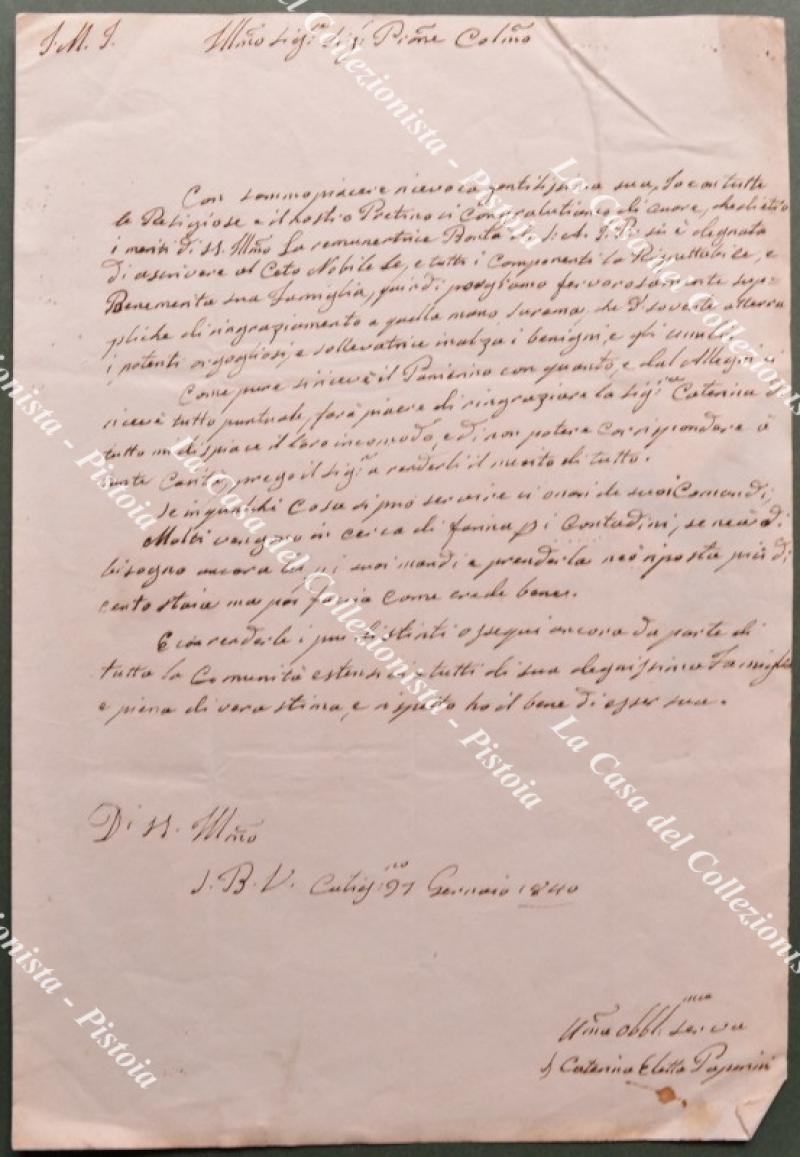 J. M. J. Illmo Sig.r Sig.r Prone Colmo
Con sommo piacere ricevo la gentilissima sua, Io con tutte
le Religiose e il nostro Pretino ci congratuliamo di cuore, che dietro
i meriti di SS. Illmo La remuneratrice Bontà di S. A. I. R. si è degnata
di ascrivere al Ceto Nobile Le, e tutti i componenti la Rispettabile, e
Benemerita sua Famiglia, quindi porghiamo fervorosamente sup=
pliche di ringraziamento a quella mano suprema, che di sovente atterra
i potenti orgogliosi, e sollevatrice inalza i benigni, e gli umili.
Come pure si ricevè il Panierino con quanto, e dal Allegri si
ricevè tutto puntuale, farà piacere di ringraziare la Sig.ra Caterina di
tutto mi dispiace il loro incomodo, e di non potere corrispondere a
tante Carità, prego il Sig.re a renderli il merito di tutto.
Se in qualche cosa si può servire ci onori de suoi Comandi,
Molti vengono in cerca di farina p i Contadini, se ne à di
bisogno ancora i suoi mandi a prenderla ne ò riposta più di
cento staia ma poi faccia come crede bene.
E con renderle i più distinti ossequi ancora da parte di
tutta la Comunità estensibili a tutti di sua degnissima Famiglia
e piena di vera stima, e rispetto ho il bene di esser sua.
Di SS. Illmo
S. B. V. Gennaio 1840
Uma obbl.ma serva
S Caterina Eletta Paperini
La Casa del Collezionista - Pistoia
La Casa del Collezionista - Pistoia
La Casa del Collezionista - Pistoia
La Casa del Collezionista